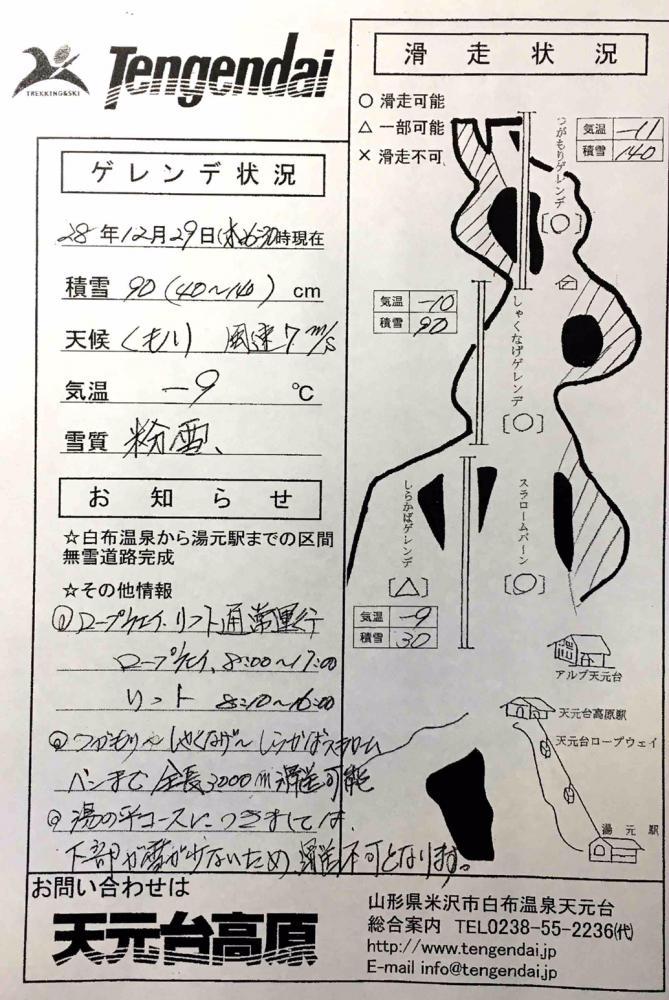 TREKKING&SKI
Tengendai
ゲレンデ状況
28年12月29日(木)6:30時現在
積雪 90 (40〜140) cm
天候 くもり 風速7m/s
気温 -9 ℃
雪質 粉雪、
お知らせ
☆白布温泉から湯元駅までの区間
無雪道路完成
☆その他情報
ロープウェイ、リフト通常運行
ロープウェイ、8:00〜17:00
リフト 8:10〜16:00
つがもり〜しゃくなげ〜しらかばスラローム
バーンまで全長3000m滑走可能
湯の平コースにつきましては、
下部が雪が少ないため滑走不可となります。
滑走状況
○ 滑走可能
△ 一部可能
× 滑走不可
つがもりゲレンデ
[○]
気温 -11
積雪 140
気温 -10
積雪 90
しゃくなげゲレンデ
[○]
しらかばゲレンデ
[△]
スラロームバーン
[○]
気温 -9
積雪 30
アルブ天元台
天元台高原駅
天元台ロープウェイ
湯元駅
お問い合わせは
天元台高原
山形県米沢市白布温泉天元台
総合案内 TEL0238-55-2236(代)
http://www.tengendai.jp
E-mail info@tengendai.jp